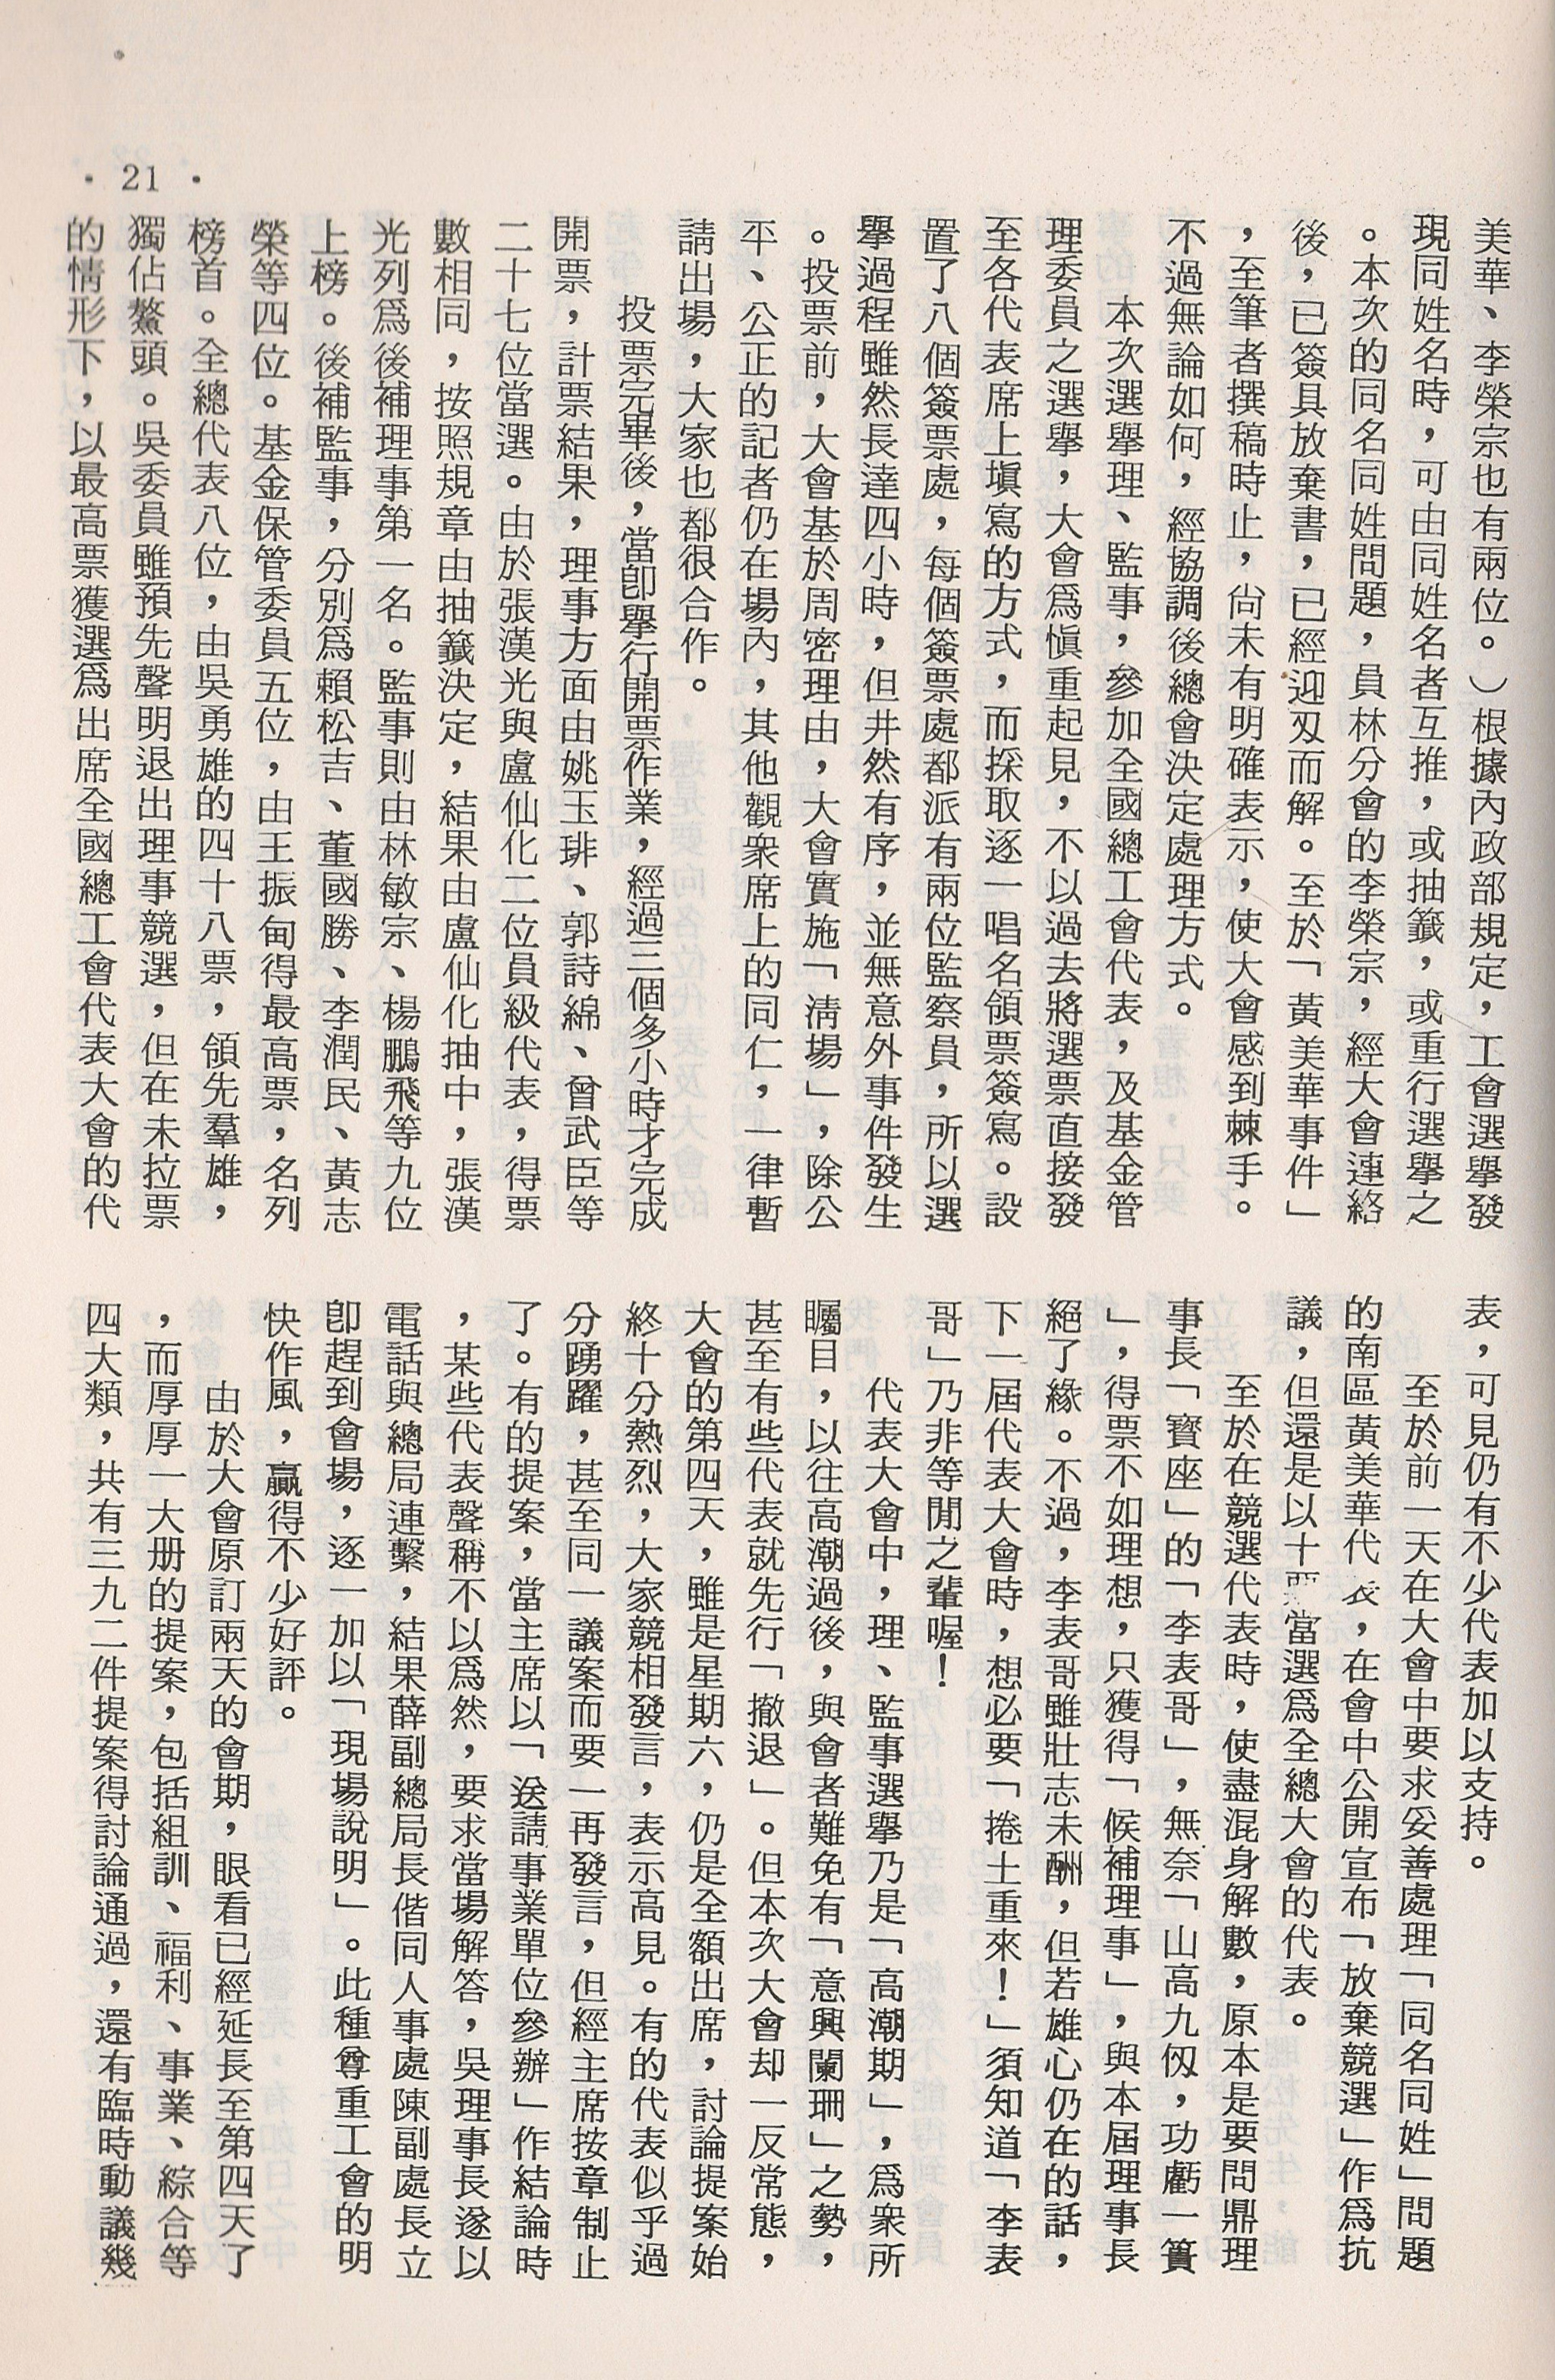 美華、李榮宗也有兩位。）根據內政部規定，工會選舉發
現同姓名時，可由同姓名者互推，或抽籤，或重行選舉之
。本次的同名同姓問題，員林分會的李榮宗，經大會連絡
後，已簽具放棄書，已經迎刃而解。至於「黃美華事件」
，至筆者撰稿時止，尚未有明確表示，使大會感到棘手。
不過無論如何，經協調後總會決定處理方式。
本次選舉理、監事，參加全國總工會代表，及基金管
理委員之選舉，大會爲愼重起見，不以過去將選票直接發
至各代表席上塡寫的方式，而採取逐一唱名領票簽寫。設
置了八個簽票處，每個簽票處都派有兩位監察員，所以選
舉過程雖然長達四小時，但井然有序，並無意外事件發生
。投票前，大會基於周密理由，大會實施「淸場」，除公
平、公正的記者仍在場內，其他觀衆席上的同仁，一律暫
請出場，大家也都很合作。
投票完畢後，當卽舉行開票作業，經過三個多小時才完成
開票，計票結果，理事方面由姚玉琲、郭詩綿、曾武臣等
二十七位當選。由於張漢光與盧仙化二位員級代表，得票
數相同，按照規章由抽籤決定，結果由盧仙化抽中，張漢
光列爲後補理事第一名。監事則由林敏宗、楊鵬飛等九位
上榜。後補監事，分別爲賴松吉、董國勝、李潤民、黃志
榮等四位。基金保管委員五位，由王振甸得最高票，名列
榜首。全總代表八位，由吳勇雄的四十八票，領先羣雄，
獨佔鰲頭。吳委員雖預先聲明退出理事競選，但在未拉票
的情形下，以最高票獲選爲出席全國總工會代表大會的代
表，可見仍有不少代表加以支持。
至於前一天在大會中要求妥善處理「同名同姓」問題
的南區黃美華代表，在會中公開宣布「放棄競選」作爲抗
議，但還是以十票當選爲全總大會的代表。
至於在競選代表時，使盡混身解數，原本是要問鼎理
事長「寶座」的「李表哥」，無奈「山高九仭，功虧一簣
」，得票不如理想，只獲得「候補理事」，與本屆理事長
絕了緣。不過，李表哥雖壯志未酬，但若雄心仍在的話，
下一屆代表大會時，想必要「捲土重來！」須知道「李表
哥」乃非等閒之輩喔！
代表大會中，理、監事選舉乃是「高潮期」，爲衆所
矚目，以往高潮過後，與會者難免有「意興闌珊」之勢，
甚至有些代表就先行「撤退」。但本次大會却一反常態，
大會的第四天，雖是星期六，仍是全額出席，討論提案始
終十分熱烈，大家競相發言，表示高見。有的代表似乎過
分踴躍，甚至同一議案而要一再發言，但經主席按章制止
了。有的提案，當主席以「送請事業單位參辦」作結論時
，某些代表聲稱不以爲然，要求當場解答，吳理事長遂以
電話與總局連繫，結果薛副總局長偕同人事處陳副處長立
卽趕到會場，逐一加以「現場說明」。此種尊重工會的明
快作風，贏得不少好評。
由於大會原訂兩天的會期，眼看已經延長至第四天了
，而厚厚一大册的提案，包括組訓、福利、事業、綜合等
四大類，共有三九二件提案得討論通過，還有臨時動議幾
・21・